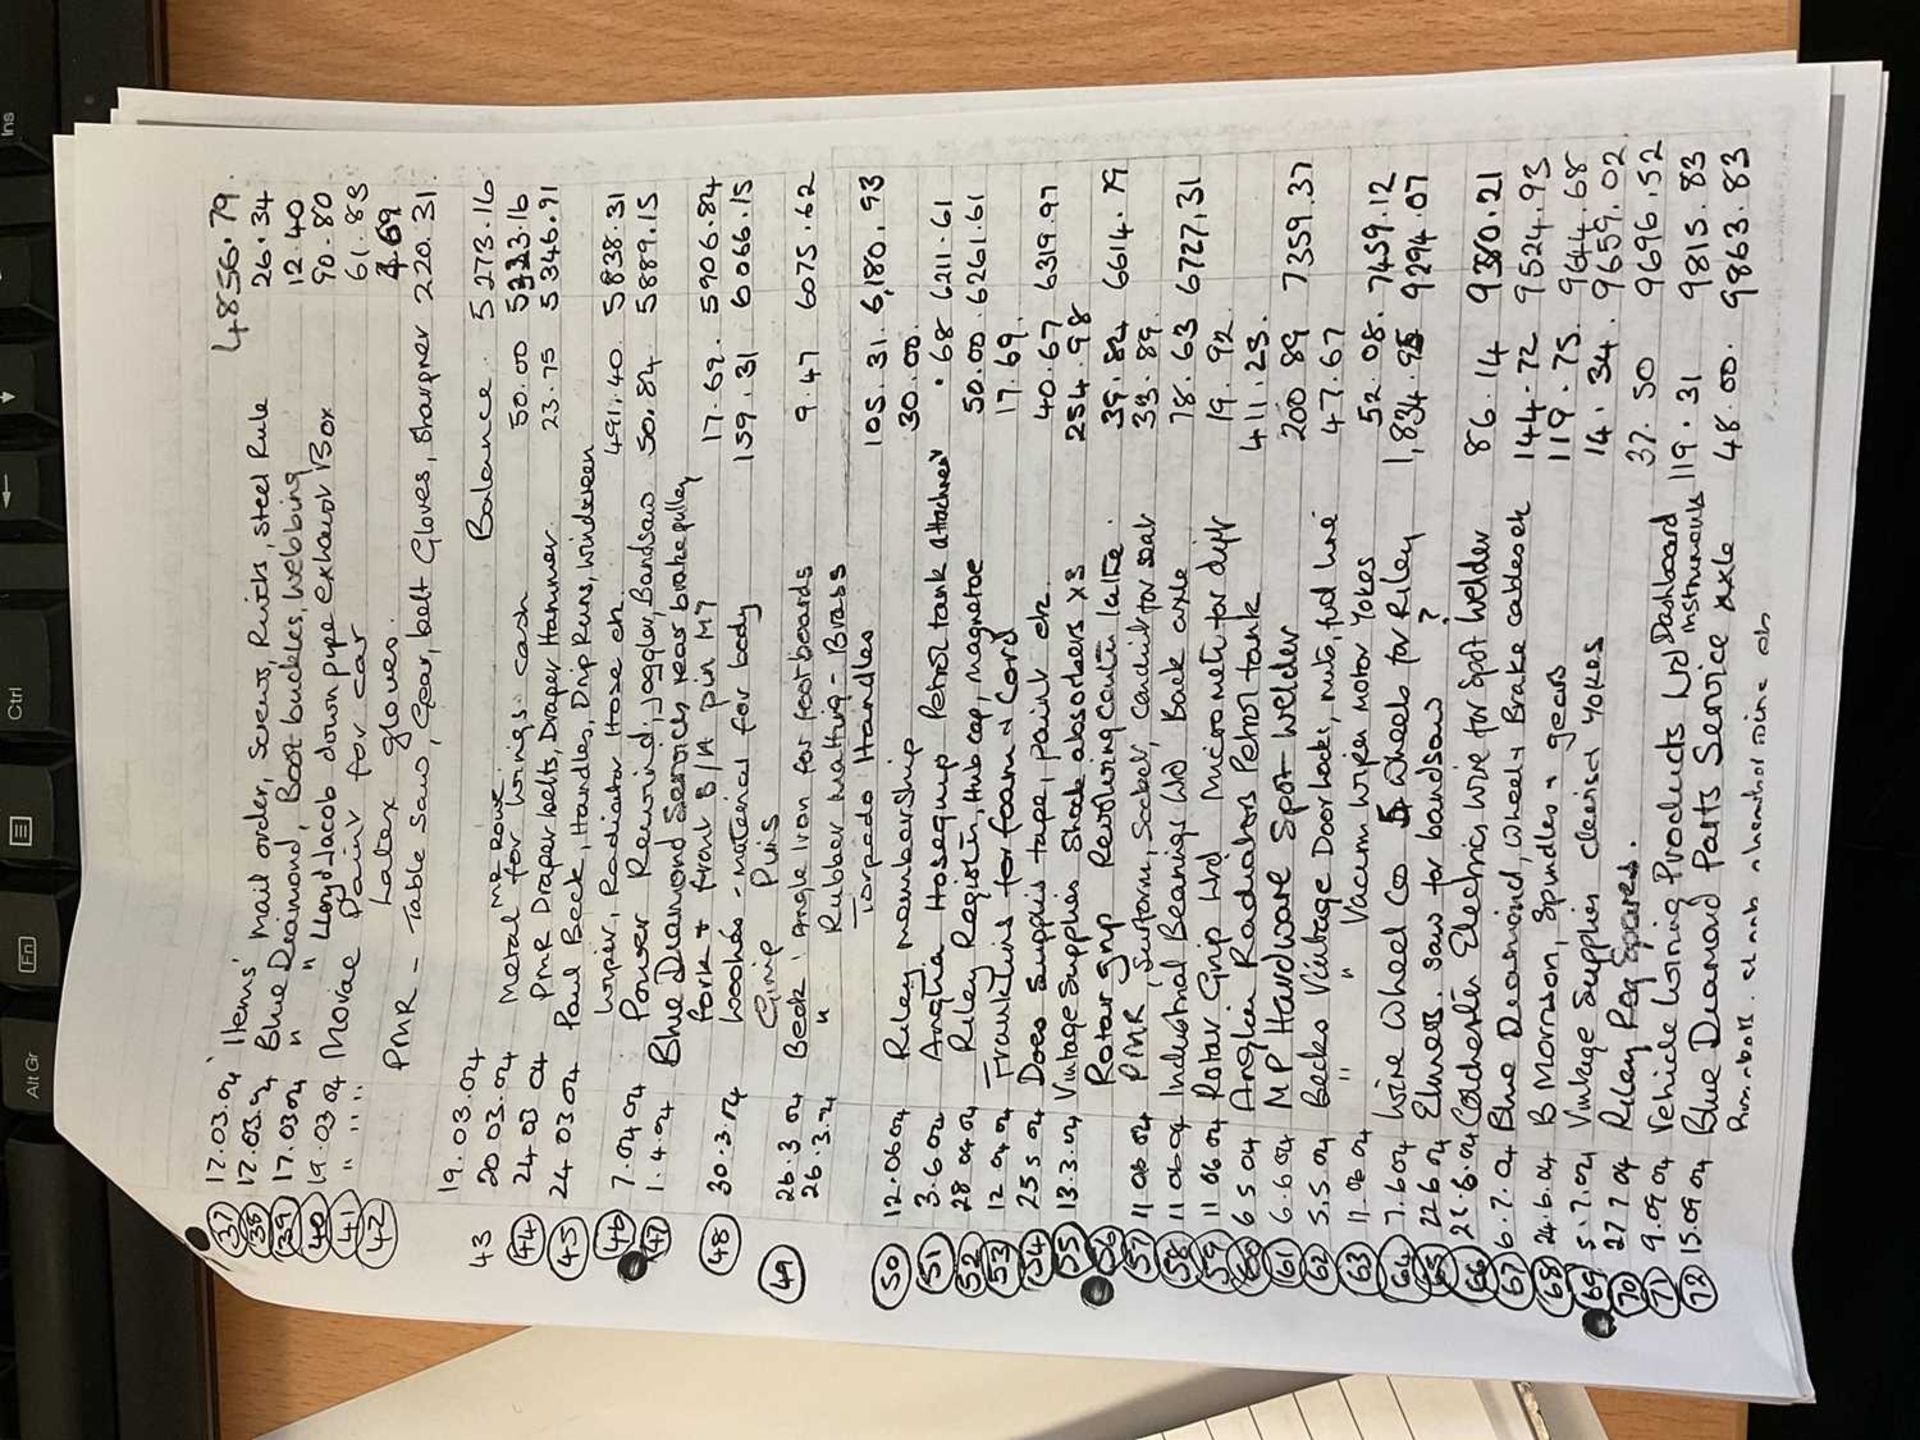 4856.79
37 17.03.04 'Items' mail order, Screws, Rivits, Steel Rule 26.34
38 17.03.04 Blue Diamond, Boot buckles, Webbing 12.40
39 17.03.04 " " Lloyd Jacob down pipe exhaust Box 90.80
40 19.03.04 Paint for car 61.83
41 " " " " Latex gloves. 4.69
42 PMR - Table Saw, Gear, belt Gloves, Sharpner 220.31
19.03.04 Balance 5273.16
43 20.03.04 Metal for wings. cash 50.00 5323.16
44 24 03 04 PMR Draper belts, Draper Hammer 23.75 5346.91
45 24 03 04 Paul Beck, Handles, Drip Runs, Windscreen
wiper, Radiator Hose etc 491.40 5838.31
46 7.04 04 Power Rewind, joggler, Bandsaw 50.84 5889.15
47 1.4.04 Blue Diamond Services rear brake pulley
fork & front B/A pin M7 17.69. 5906.84
48 30.3.04 - material for body 159.31 6066.15
Gimp Pins
49 26.3 04 Beck, Angle Iron for foot boards 9.47 6075.62
26.3.04 " Rubber matting - Brass
Torpedo Handles 105.31. 6,180.93
50 12.06 04 Riley membership 30.00.
51 3.6.04 Anglia Hosequip Petrol tank attachmen .68 6211.61
52 28 04 04 Riley Register, Hub cap, magnetoe 50.00. 6261.61
53 12 04 04 Franklins for foam & Cord 17.69.
54 25 5 04 Does Supplies tape, paint etc. 40.67 6319.97
55 13.3.04 Vintage Supplies Shock absorbers x 3 254.98
56 Rotar Grip Revolving centre lathe. 39.84 6614.79
57 11 06 04 PMR, Surform, Socket, conduit for seat 33.89.
58 11 06 04 Industrial Bearings Ltd Back axle 78.63 6727.31
59 11 06 04 Rotar Grip Ltd Micrometer for 19.92.
60 6 5 04 Anglia Radiators Petrol tank 411.25.
61 6.6 04 MP Hardware Spot-Welder 200 89 7359.37
62 5.5.04 Becks Vintage Door locks, nuts, fuel line 47.67
63 11.06 04 " " Vacum wiper motor Yokes 52 08. 7459.12
64 7.6 04 Wire Wheel Co 5 wheels for Riley 1,834.95 9294.07
65 22 6 04 saw for bandsaw ?
66 28.6.04 Colchester Electrics wire for spot welder 86.14 9380.21
67 6.7.04 Blue Deamond, Wheel & Brake 144.72 9524.93
68 24.6.04 B Morrison, Spindles & gears 119.75. 9644.68
69 5.7.04 Vintage Supplies Yokes 14.34. 9659.02
70 27 7 04 Riley Reg Spares. 37.50 9696.52
71 9.09 04 Vehicle Wiring Products Ltd Dashboard
Instruments 119.31 9815.83
72 15.09 04 Blue Diamond Parts Service axle 48.00. 9863.83